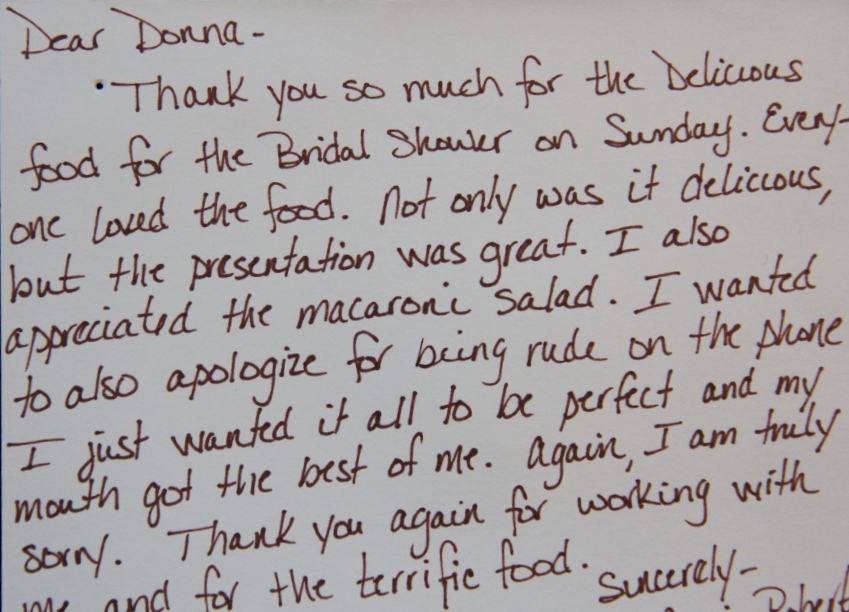 Dear Donna-
Thank you so much for the Delicious
food for the Bridal Shower on Sunday. Every-
one loved the food. Not only was it delicious,
but the presentation was great. I also
appreciated the macaroni salad. I wanted
to also apologize for being rude on the phone
I just wanted it all to be perfect and my
mouth got the best of me. Again, I am truly
sorry. Thank you again for working with
me and for the terrific food.
Sincerely-
Robert